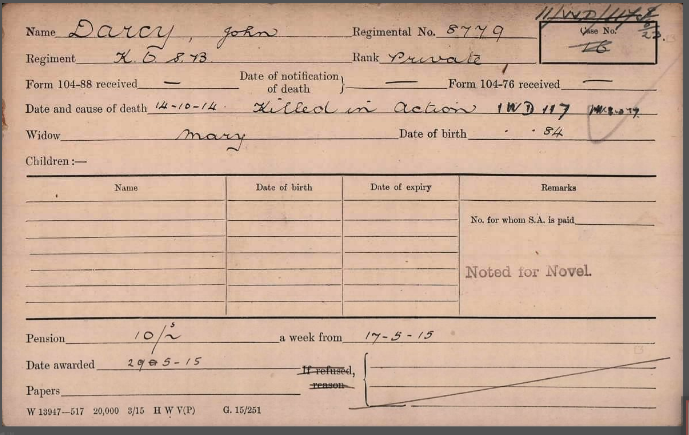 Name Darcy, John Regimental No. 8779
Case No.
16
Regiment K. O S. B. Rank Private
Form 104-88 received — Date of notification of death } — Form 104-76 received —
Date and cause of death 14-10-14. Killed in Action 1WD 117
Widow Mary Date of birth . . 84
Children :—
Name Date of birth Date of expiry Remarks
No. for whom S.A. is paid
Noted for Novel.
Pension 10/2 a week from 17-5-15
Date awarded 5-15
If refused, reason
Papers
W 13947—517 20,000 3/15 H W V(P) G. 15/251